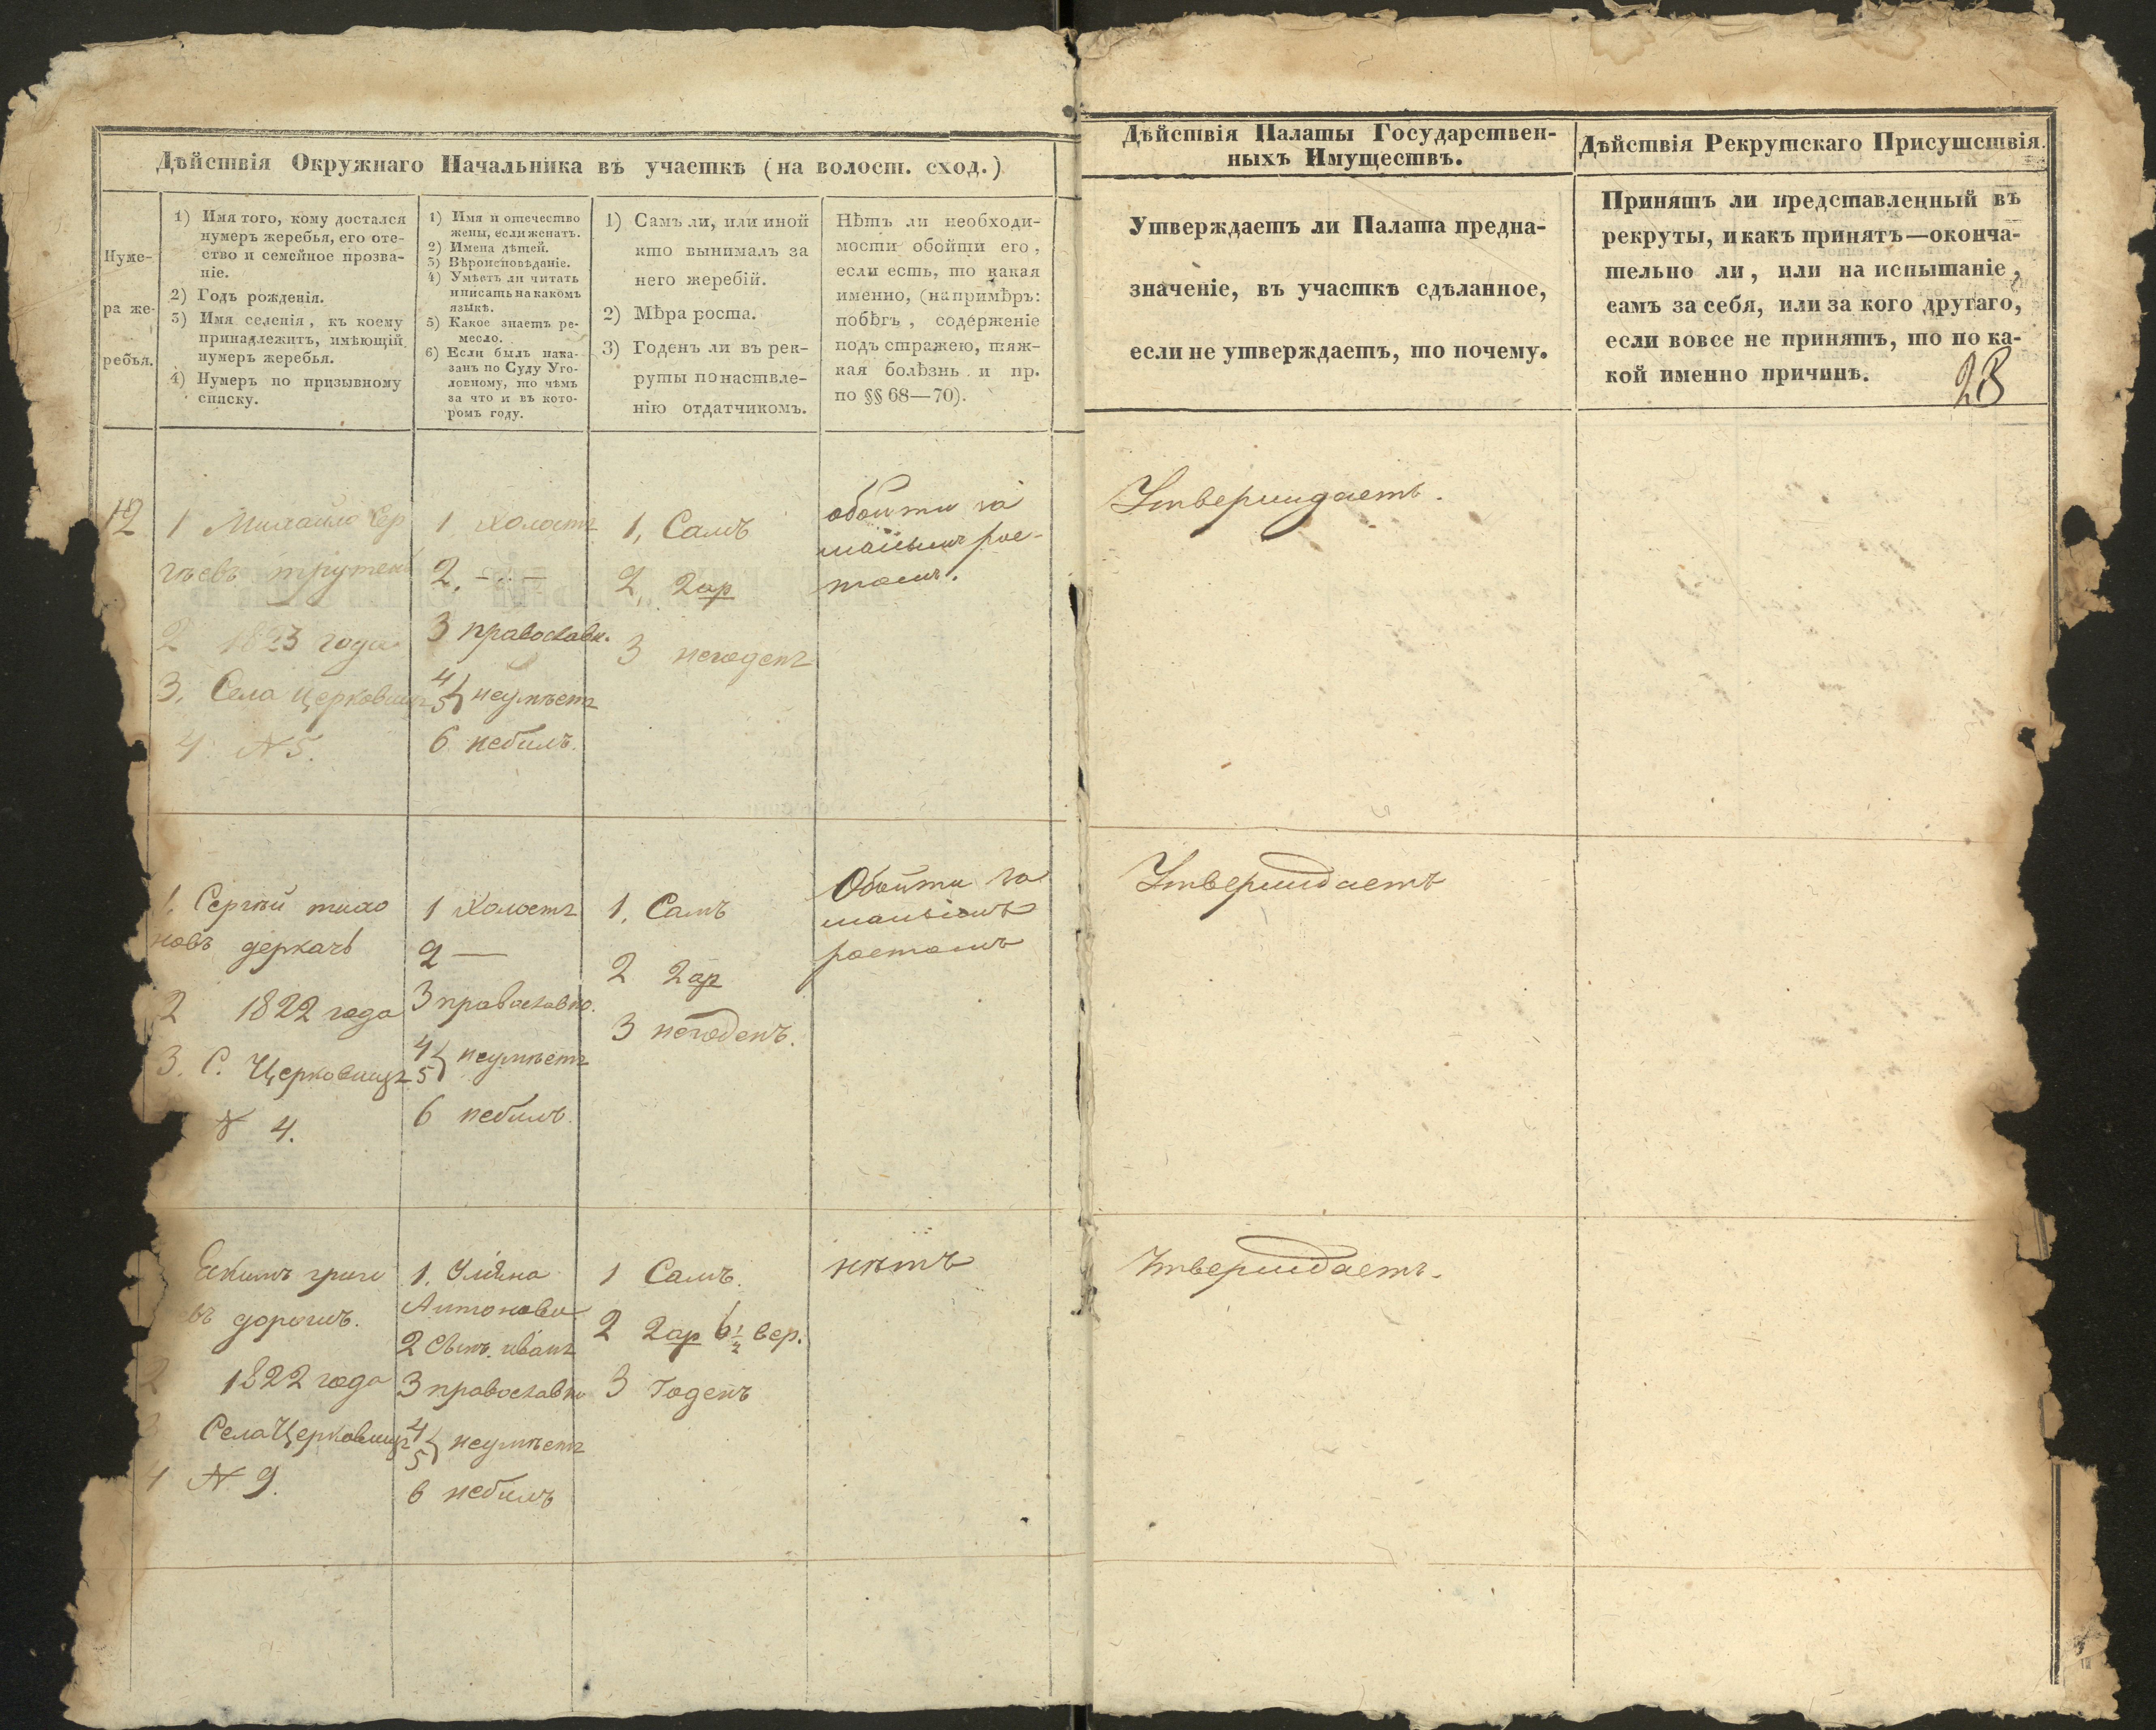 Дѣйствія Окружнаго Начальника въ участкѣ (на волост. сход.)
Нуме-
ра же-
ребья.
1) Имя того, кому достался
нумеръ жеребья, его оте-
ство и семейное прозва-
ніе.
2) Годъ рожденія.
3) Имя селенія, къ коему
принадлежитъ, имѣющій
нумеръ жеребья.
4) Нумеръ по призывному
списку.
1) Имя и отечество
жены, если женатъ.
2) Имена дѣтей.
3) Вѣроисповѣданіе.
4) Умѣетъ ли читать
и писать на какомъ
языкѣ.
5) Какое знаетъ ре-
месло.
6) Если былъ нака-
занъ по Суду Уго-
ловному, то чѣмъ
за что и въ кото-
ромъ году.
1) Самъ ли, или иной
кто вынималъ за
него жеребій.
2) Мѣра роста.
3) Годенъ ли въ рек-
руты по наствле-
нію отдатчикомъ.
Нѣтъ ли необходи-
мости обойти его,
если есть, то какая
именно, (напримѣръ:
побѣгъ, содержаніе
подъ стражею, тяж-
кая болѣзнь и пр.
по §§ 68—70).
Дѣйствія Палаты Государствен-
ныхъ Имуществъ.
Утверждаетъ ли Палата предна-
значеніе, въ участкѣ сдѣланное,
если не утверждаетъ, то почему.
Дѣйствія Рекрутскаго Присутствія.
Принятъ ли представленный въ
рекруты, и какъ принятъ—оконча-
тельно ли, или на испытаніе,
самъ за себя, или за кого другаго,
если вовсе не принятъ, то по ка-
кой именно причинѣ.
12
1 Михайло Сер
гѣевъ трутень
2 1823 года
3. Села Церковищъ
4 N 5.
1, Холостъ
2. — —
3 православн.
4
5 } неумѣетъ
6 небылъ.
1, Самъ
2, 2 ар
3 негоденъ
обойти за
малымъ рос-
томъ.
Утверждаетъ.
1. Сергѣй тихо
новъ деркачь
2 1822 года
3. С. Церковищъ
N 4.
1 Холостъ
2 —
3 православно.
4
5 } неумѣетъ
6 небылъ.
1, Самъ
2 2 ар
3 негоденъ.
Обойти за
малымъ
ростомъ
Утверждаетъ
Екимъ григо
евъ дорошъ.
2 1822 года
3 Села Церковищъ
4 N 9.
1. Уліяна
Антонова
2 Сынъ иванъ
3 православно
4
5 } неумѣетъ
6 небылъ
1 Самъ.
2 2 ар 6 1/2 вер.
3 Годенъ
нѣтъ
Утверждаетъ.